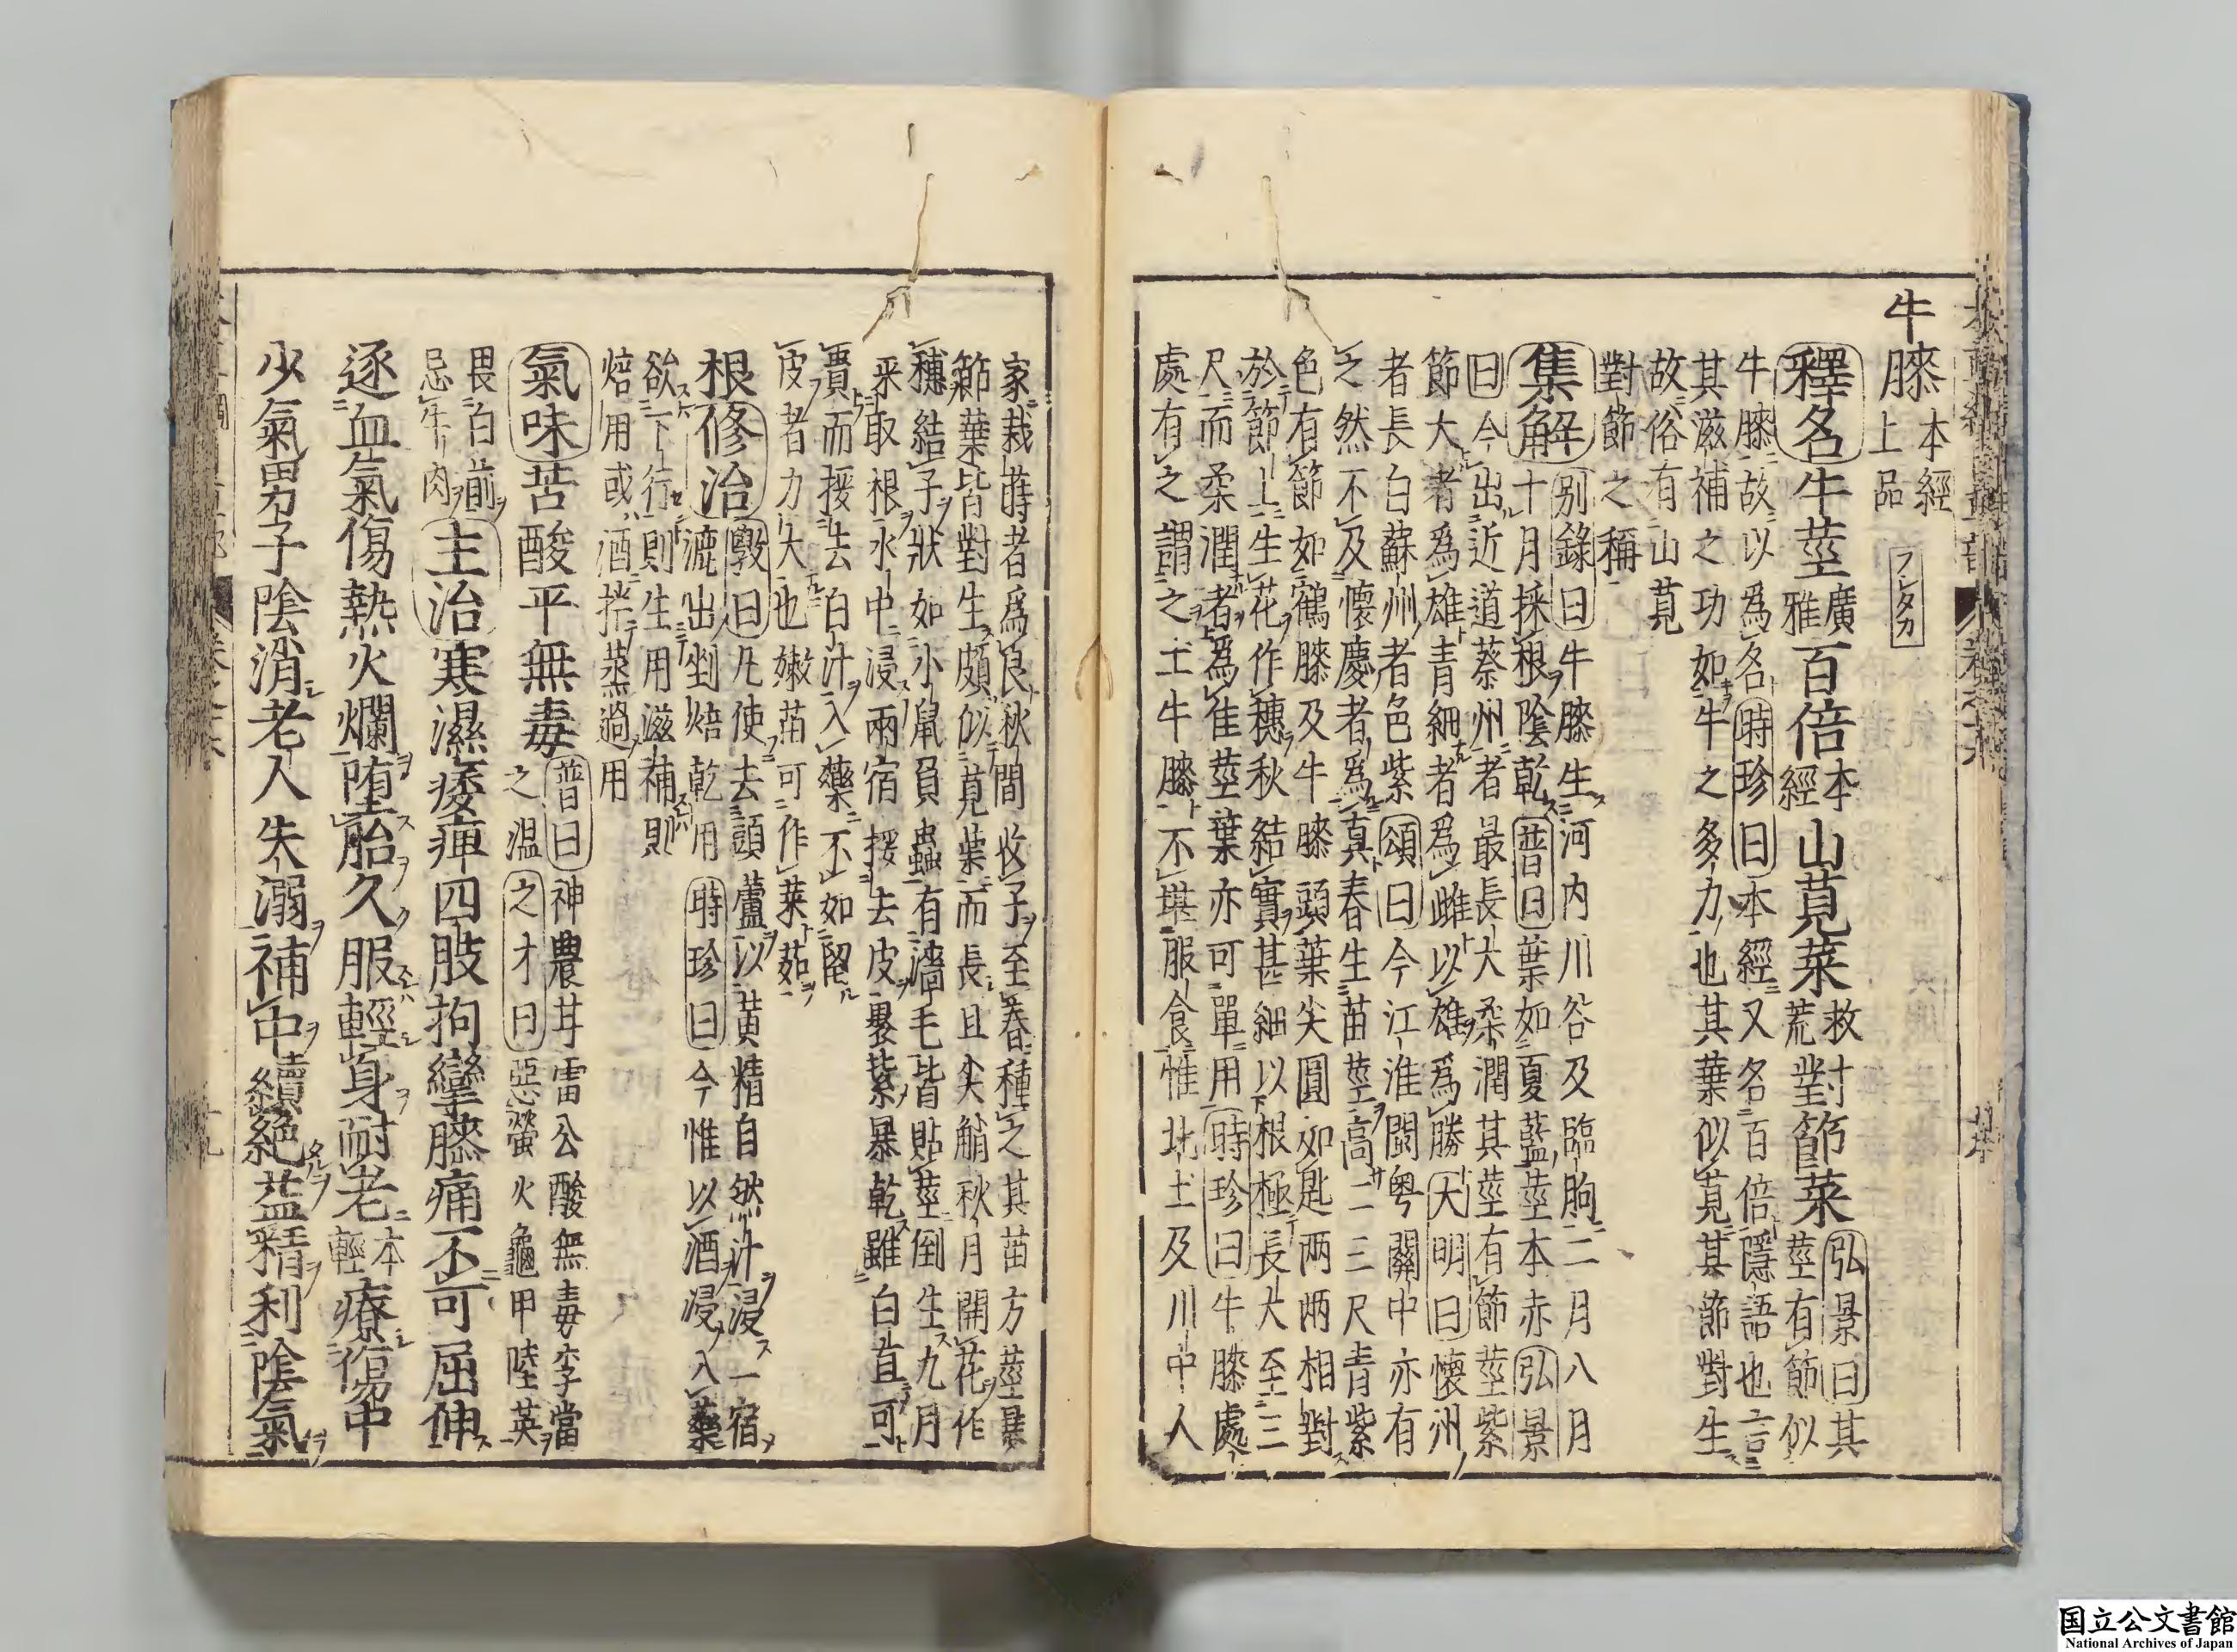 牛膝本經上品 フシタカ
釋名牛莖廣雅百倍本經山莧菜救荒對節菜弘景曰其莖有節似
牛膝故以爲名時珍曰本經又名百倍隱語也言
其滋補之功如牛之多力也其葉似莧其節對生
故俗有山莧
對節之稱
集解別錄曰牛膝生河内川谷及臨朐二月八月
十月採根陰乾普曰葉如夏藍莖本赤弘景
曰今出近道蔡州者最長大柔潤其莖有節莖紫
節大者爲雄青細者爲雌以雄爲勝大明曰懷州
者長白蘇州者色紫頌曰今江淮閩粤關中亦有
之然不及懷慶者爲真春生苗莖高二三尺青紫
色有節如鶴膝及牛膝頭葉尖圓如匙两两相對
於節上生花作穗秋結實甚細以根極長大至三
尺而柔潤者爲佳莖葉亦可單用時珍曰牛膝處
處有之謂之土牛膝不堪服食惟北土及川中人
家栽蒔者爲良秋間收子至春種之其苗方莖暴
節葉皆對生頗似莧葉而長且尖艄秋月開花作
穗結子狀如小鼠負蟲有濇毛皆貼莖倒生九月
采取根水中浸兩宿挼去皮裹紮暴乾雖白直可
貴而挼去白汁入藥不如留
皮者力大也嫩苗可作菜茹
根修治斅曰凡使去頭蘆以黄精自然汁浸一宿
漉出剉焙乾用時珍曰今惟以酒浸入藥
欲下行則生用滋補則
焙用或酒拌蒸過用
氣味苦酸平無毒普曰神農甘雷公酸無毒李當
之温之才曰惡螢火龜甲陸英
畏白前
忌牛肉主治寒濕痿痺四肢拘攣膝痛不可屈伸
逐血氣傷熱火爛墮胎久服輕身耐老本輕療傷中
少氣男子陰消老人失溺補中續絕益精利陰氣
国立公文書館
National Archives of Japan